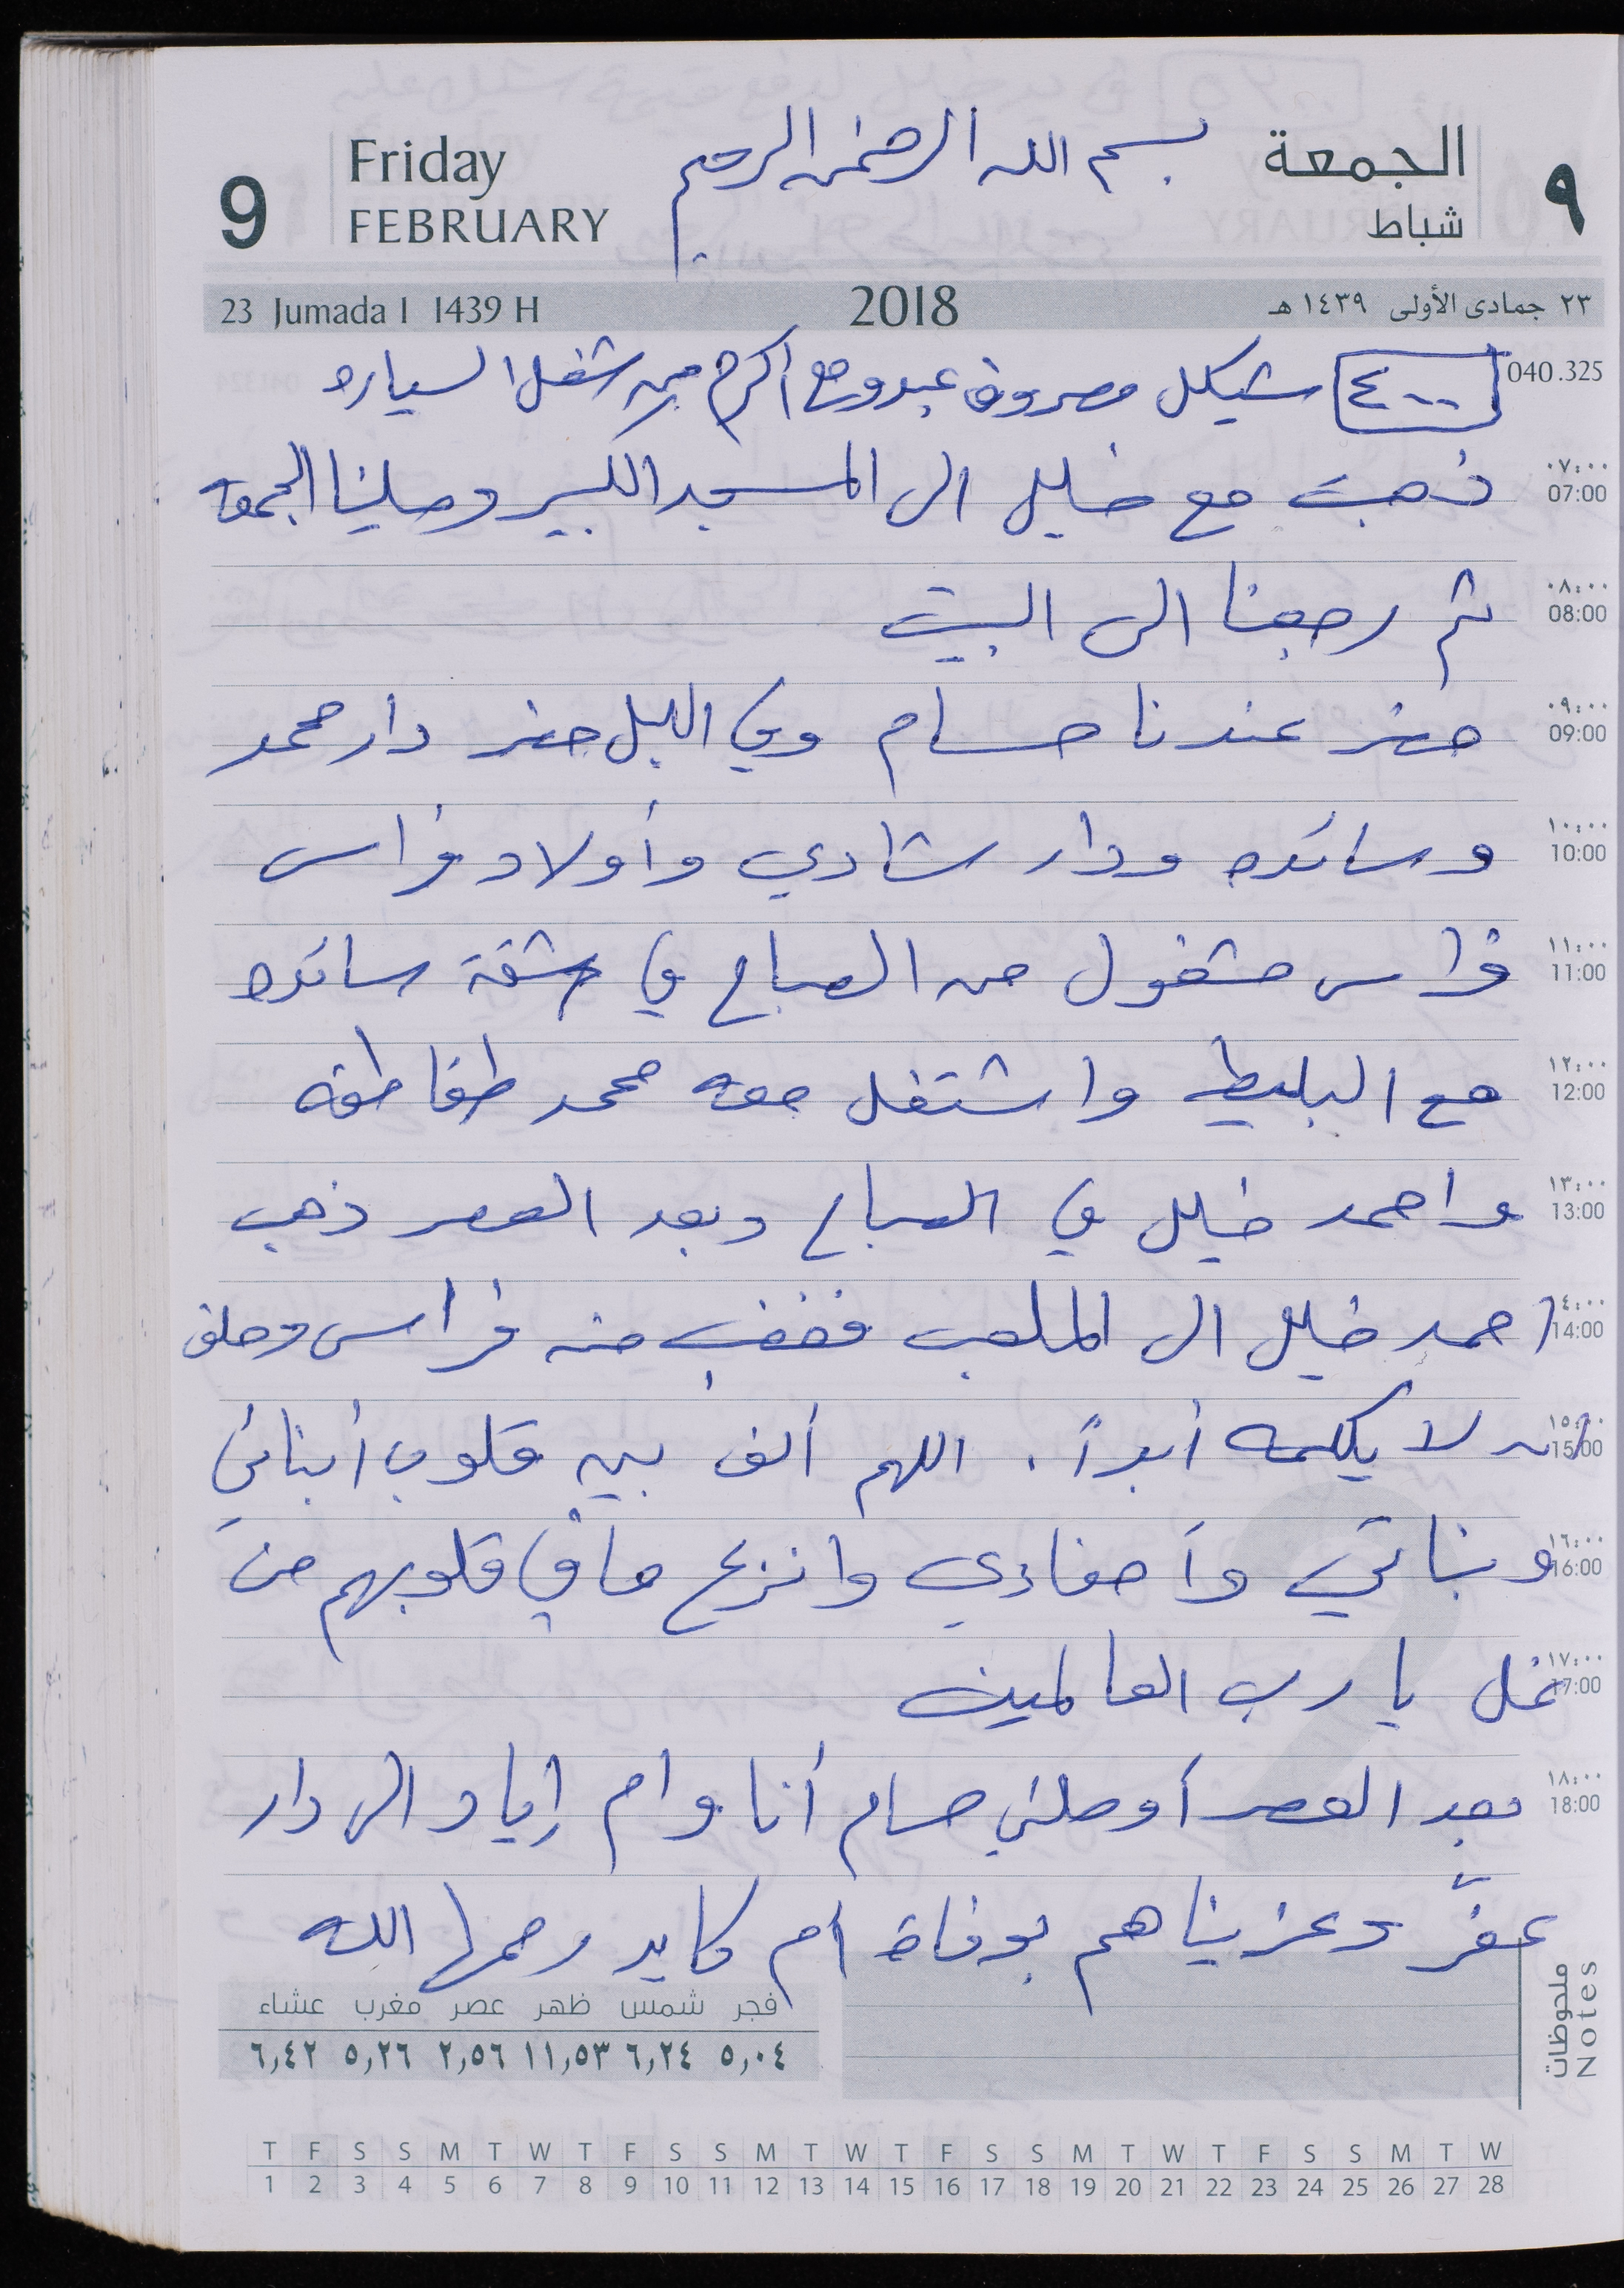 9 Friday FEBRUARY بسم الله الرحمن الرحيم الجمعة شباط ٩
23 Jumada I 1439 H 2018 ٢٣ جمادى الأولى ١٤٣٩ هـ
040.325
٤٠٠ شيكل مصروف عبدو مع أكرم من شغل السياره
٠٧:٠٠ 07:00 ذهبت مع خليل الى المسجد الكبير وصلينا الجمعه
٠٨:٠٠ 08:00 ثم رجعنا الى البيت
٠٩:٠٠ 09:00 حضر عندنا حسام وفي الليل حضر دار محمد
١٠:٠٠ 10:00 وسائده ودار شادي وأولاد فراس
١١:٠٠ 11:00 فراس مشغول من الصباح في شقة سائده
١٢:٠٠ 12:00 مع البليط واشتغل معه محمد طقاطقه
١٣:٠٠ 13:00 واحمد خليل في الصباح وبعد العصر ذهب
١٤:٠٠ 14:00 احمد خليل الى الملعب فغضب منه فراس وحلف
١٥:٠٠ 15:00 ان لا يكلمه أبداً . اللهم ألف بين قلوب أبنائي
١٦:٠٠ 16:00 وبناتي وأحفادي وانزع ما في قلوبهم من
١٧:٠٠ 17:00 غل يا رب العالمين
١٨:٠٠ 18:00 بعد العصر أوصلني حسام أنا وام إياد الى دار
وعزيناهم بوفاة أم كايد رحمها الله
ملحوظات Notes
فجر شمس ظهر عصر مغرب عشاء
٥,٠٤ ٦,٢٤ ١١,٥٣ ٢,٥٦ ٥,٢٦ ٦,٤٢
T F S S M T W T F S S M T W T F S S M T W T F S S M T W
1 2 3 4 5 6 7 8 9 10 11 12 13 14 15 16 17 18 19 20 21 22 23 24 25 26 27 28